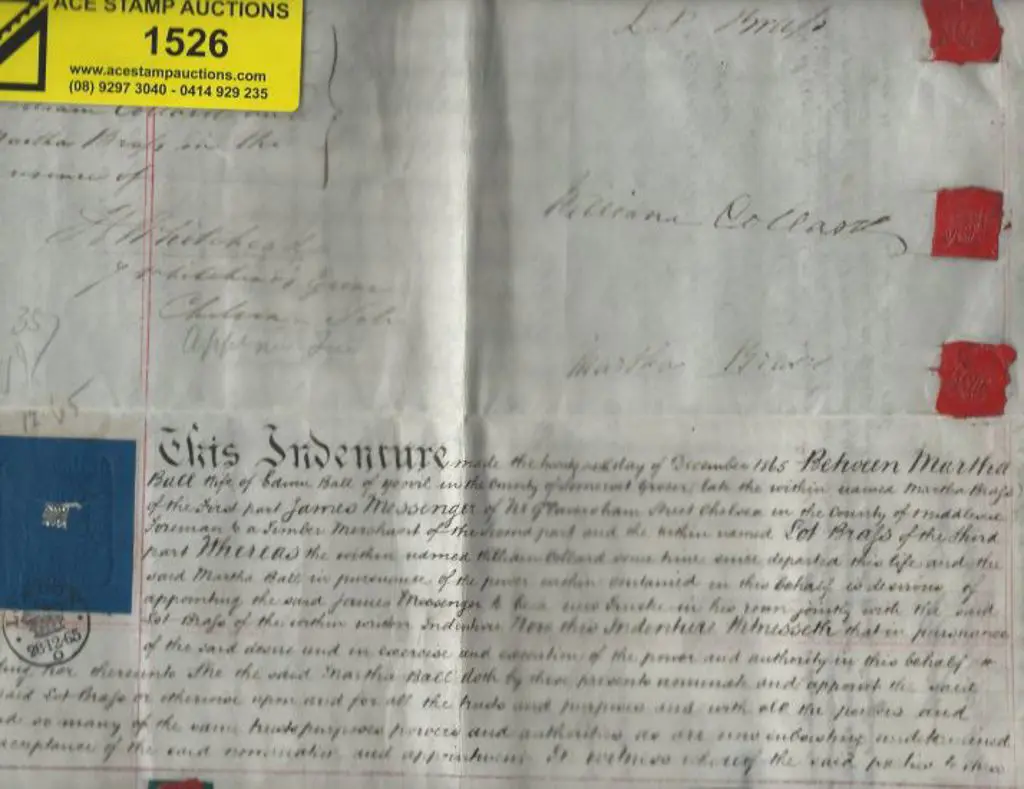 ACE STAMP AUCTIONS
1526
www.acestampauctions.com
(08) 9297 3040 - 0414 929 235
Brass
Martha Brass in the
of
William Collard
Whitehead
Chelsea
Martha Brass
35
12.65
This Indenture made the day of December 1865 Between Martha
Ball Wife of Edwin Ball of Yeovil in the County of Somerset Grocer late the within named Martha Brass
of the First part James Messenger of No 9 Caversham Street Chelsea in the County of Middlesex
Foreman to a Timber Merchant of the second part and the within named Lot Brass of the third
part Whereas the within named William Collard some time since departed this life and the
said Martha Ball in pursuance of the power within contained in this behalf is desirous of
appointing the said James Messenger to be a new Trustee in his room jointly with the said
Lot Brass of the within written Indenture Now this Indenture Witnesseth that in pursuance
of the said desire and in exercise and execution of the power and authority in this behalf to
her thereunto She the said Martha Ball doth by these presents nominate and appoint the said
said Lot Brass or otherwise upon and for all the trusts and purposes and with all the powers and
so many of the same trusts purposes powers and authorities as are now subsisting undetermined
acceptance of the said nomination and appointment In witness whereof the said parties to these
26 12-65